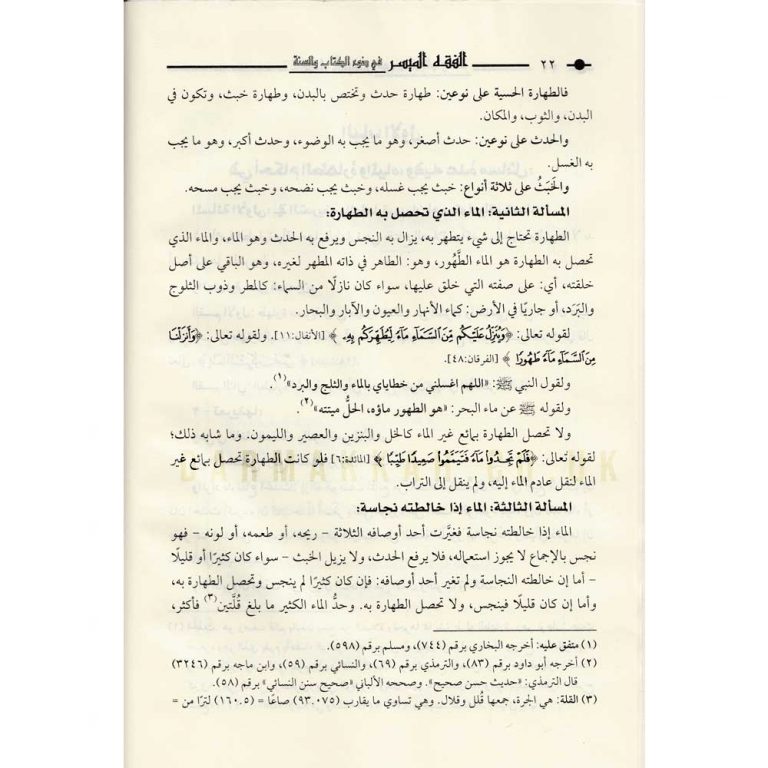 ٢٢ الفقه الميسر في ضوء الكتاب والسنة
فالطهارة الحسية على نوعين: طهارة حدث وتختص بالبدن، وطهارة خبث، وتكون في
البدن، والثوب، والمكان.
والحدث على نوعين: حدث أصغر، وهو ما يجب به الوضوء، وحدث أكبر، وهو ما يجب
به الغسل.
والخَبَثُ على ثلاثة أنواع: خبث يجب غسله، وخبث يجب نضحه، وخبث يجب مسحه.
المسألة الثانية: الماء الذي تحصل به الطهارة:
الطهارة تحتاج إلى شيء يتطهر به، يزال به النجس ويرفع به الحدث وهو الماء، والماء الذي
تحصل به الطهارة هو الماء الطَّهُور، وهو: الطاهر في ذاته المطهر لغيره، وهو الباقي على أصل
خلقته، أي: على صفته التي خلق عليها، سواء كان نازلًا من السماء: كالمطر وذوب الثلوج
والبَرَد، أو جاريًا في الأرض: كماء الأنهار والعيون والآبار والبحار.
لقوله تعالى: ﴿وَيُنَزِّلُ عَلَيْكُم مِّنَ السَّمَاءِ مَاءً لِّيُطَهِّرَكُم بِهِ﴾ [الأنفال:١١]. ولقوله تعالى: ﴿وَأَنزَلْنَا
مِنَ السَّمَاءِ مَاءً طَهُورًا﴾ [الفرقان:٤٨].
ولقول النبي ﷺ: «اللهم اغسلني من خطاياي بالماء والثلج والبرد»(١).
ولقوله ﷺ عن ماء البحر: «هو الطهور ماؤه، الحلُّ ميتته»(٢).
ولا تحصل الطهارة بمائع غير الماء كالخل والبنزين والعصير والليمون. وما شابه ذلك؛
لقوله تعالى: ﴿فَلَمْ تَجِدُوا مَاءً فَتَيَمَّمُوا صَعِيدًا طَيِّبًا﴾ [المائدة:٦] فلو كانت الطهارة تحصل بمائع غير
الماء لنقل عادم الماء إليه، ولم ينقل إلى التراب.
المسألة الثالثة: الماء إذا خالطته نجاسة:
الماء إذا خالطته نجاسة فغيَّرت أحد أوصافه الثلاثة - ريحه، أو طعمه، أو لونه - فهو
نجس بالإجماع لا يجوز استعماله، فلا يرفع الحدث، ولا يزيل الخبث - سواء كان كثيرًا أو قليلًا
- أما إن خالطته النجاسة ولم تغير أحد أوصافه: فإن كان كثيرًا لم ينجس وتحصل الطهارة به،
وأما إن كان قليلًا فينجس، ولا تحصل الطهارة به. وحدُّ الماء الكثير ما بلغ قُلَّتين(٣) فأكثر،
(١) متفق عليه: أخرجه البخاري برقم (٧٤٤)، ومسلم برقم (٥٩٨).
(٢) أخرجه أبو داود برقم (٨٣)، والترمذي برقم (٦٩)، والنسائي برقم (٥٩)، وابن ماجه برقم (٣٢٤٦)
قال الترمذي: «حديث حسن صحيح». وصححه الألباني «صحيح سنن النسائي» برقم (٥٨).
(٣) القلة: هي الجرة، جمعها قُلل وقلال. وهي تساوي ما يقارب (٩٣.٠٧٥) صاعًا = (١٦٠.٥) لترًا من =